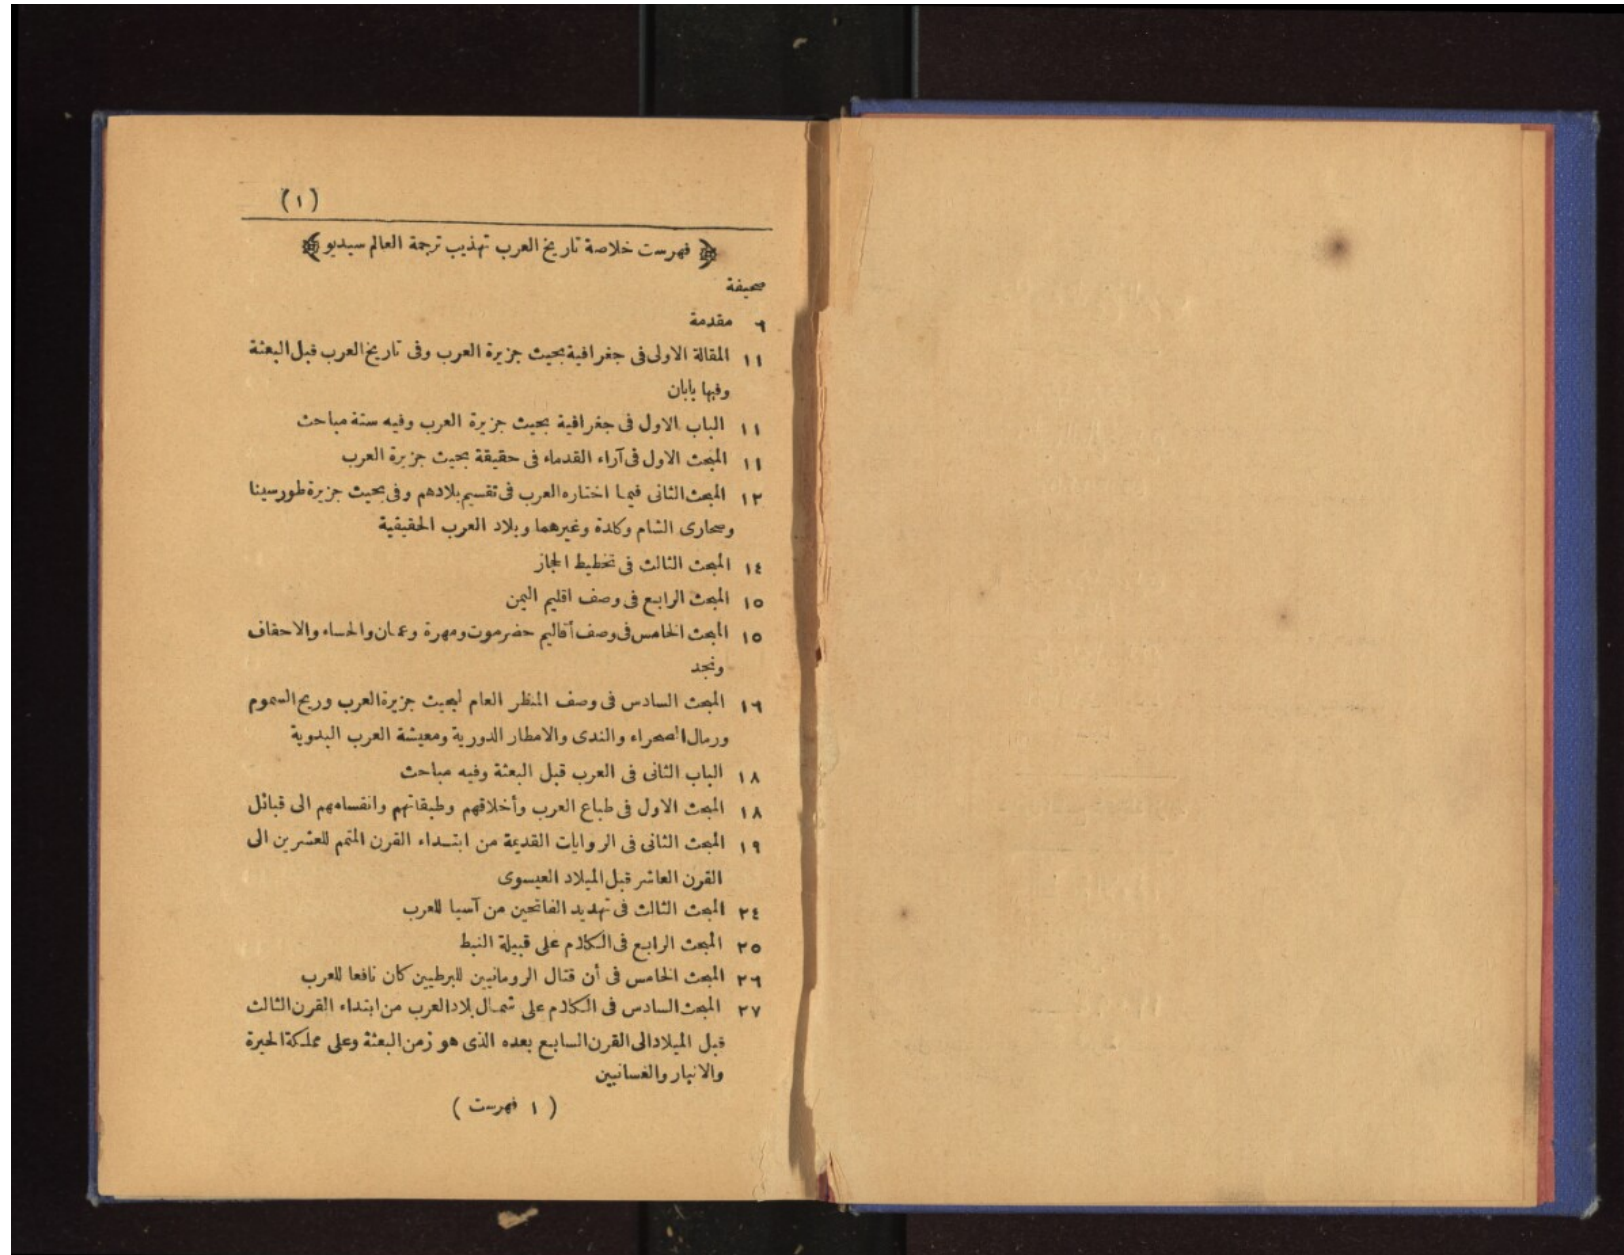 (١)
﴿ فهرست خلاصة تاريخ العرب تهذيب ترجمة العالم سيديو ﴾
صحيفة
٦ مقدمة
١١ المقالة الاولى فى جغرافية بحيث جزيرة العرب وفى تاريخ العرب قبل البعثة
وفيها بابان
١١ الباب الاول فى جغرافية بحيث جزيرة العرب وفيه ستة مباحث
١١ المبحث الاول فى آراء القدماء فى حقيقة بحيث جزيرة العرب
١٢ المبحث الثانى فيما اختاره العرب فى تقسيم بلادهم وفى بحيث جزيرة طورسينا
وصحارى الشام وكلدة وغيرهما وبلاد العرب الحقيقية
١٤ المبحث الثالث فى تخطيط الحجاز
١٥ المبحث الرابع فى وصف اقليم اليمن
١٥ المبحث الخامس فى وصف أقاليم حضرموت ومهرة وعمان والحساء والاحقاف
ونجد
١٦ المبحث السادس فى وصف المنظر العام لبحيث جزيرة العرب وريح السموم
ورمال الصحراء والندى والامطار الدورية ومعيشة العرب البدوية
١٨ الباب الثانى فى العرب قبل البعثة وفيه مباحث
١٨ المبحث الاول فى طباع العرب وأخلاقهم وطبقاتهم وانقسامهم الى قبائل
١٩ المبحث الثانى فى الروايات القديمة من ابتداء القرن المتمم للعشرين الى
القرن العاشر قبل الميلاد العيسوى
٢٤ المبحث الثالث فى تهديد الفاتحين من آسيا للعرب
٢٥ المبحث الرابع فى الكلام على قبيلة النبط
٢٦ المبحث الخامس فى أن قتال الرومانيين للبرطيين كان نافعا للعرب
٢٧ المبحث السادس فى الكلام على شمال بلاد العرب من ابتداء القرن الثالث
قبل الميلاد الى القرن السابع بعده الذى هو زمن البعثة وعلى مملكة الحيرة
والانبار والغسانيين
( ١ فهرست )